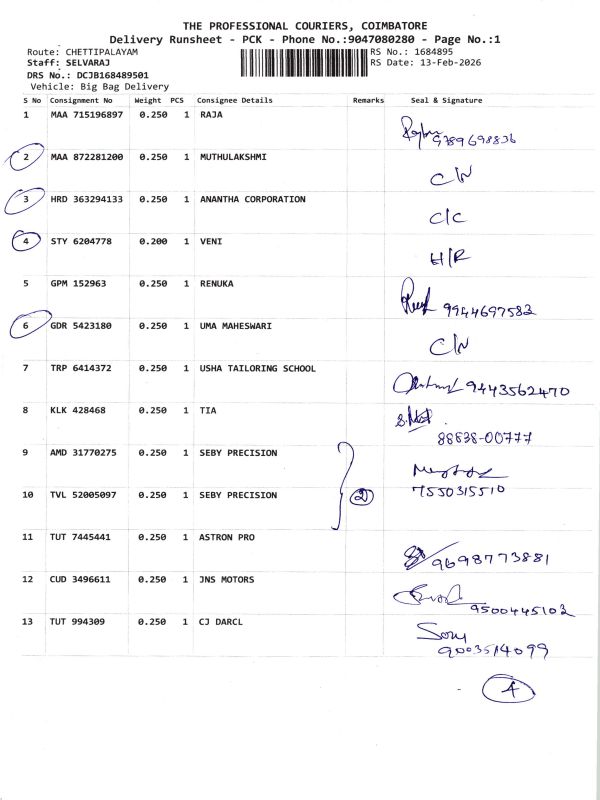 THE PROFESSIONAL COURIERS, COIMBATORE
Delivery Runsheet - PCK - Phone No.:9047080280 - Page No.:1
Route: CHETTIPALAYAM RS No.: 1684895
Staff: SELVARAJ RS Date: 13-Feb-2026
DRS No.: DCJB168489501
Vehicle: Big Bag Delivery
S No Consignment No Weight PCS Consignee Details Remarks Seal & Signature
1 MAA 715196897 0.250 1 RAJA
9789698836
2 MAA 872281200 0.250 1 MUTHULAKSHMI
C/N
3 HRD 363294133 0.250 1 ANANTHA CORPORATION
C/C
4 STY 6204778 0.200 1 VENI
H/R
5 GPM 152963 0.250 1 RENUKA
9944697582
6 GDR 5423180 0.250 1 UMA MAHESWARI
C/N
7 TRP 6414372 0.250 1 USHA TAILORING SCHOOL
9443562470
8 KLK 428468 0.250 1 TIA
88838-00777
9 AMD 31770275 0.250 1 SEBY PRECISION
10 TVL 52005097 0.250 1 SEBY PRECISION 2 7550315510
11 TUT 7445441 0.250 1 ASTRON PRO
9698773881
12 CUD 3496611 0.250 1 JNS MOTORS
9500445102
13 TUT 994309 0.250 1 CJ DARCL
Sony
9003514099
4